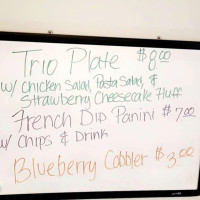 Trio Plate $8.00
w/ Chicken Salad, Pasta Salad, &
Strawberry Cheesecake Fluff
French Dip Panini $7.00
w/ Chips & Drink
Blueberry Cobbler $3.00